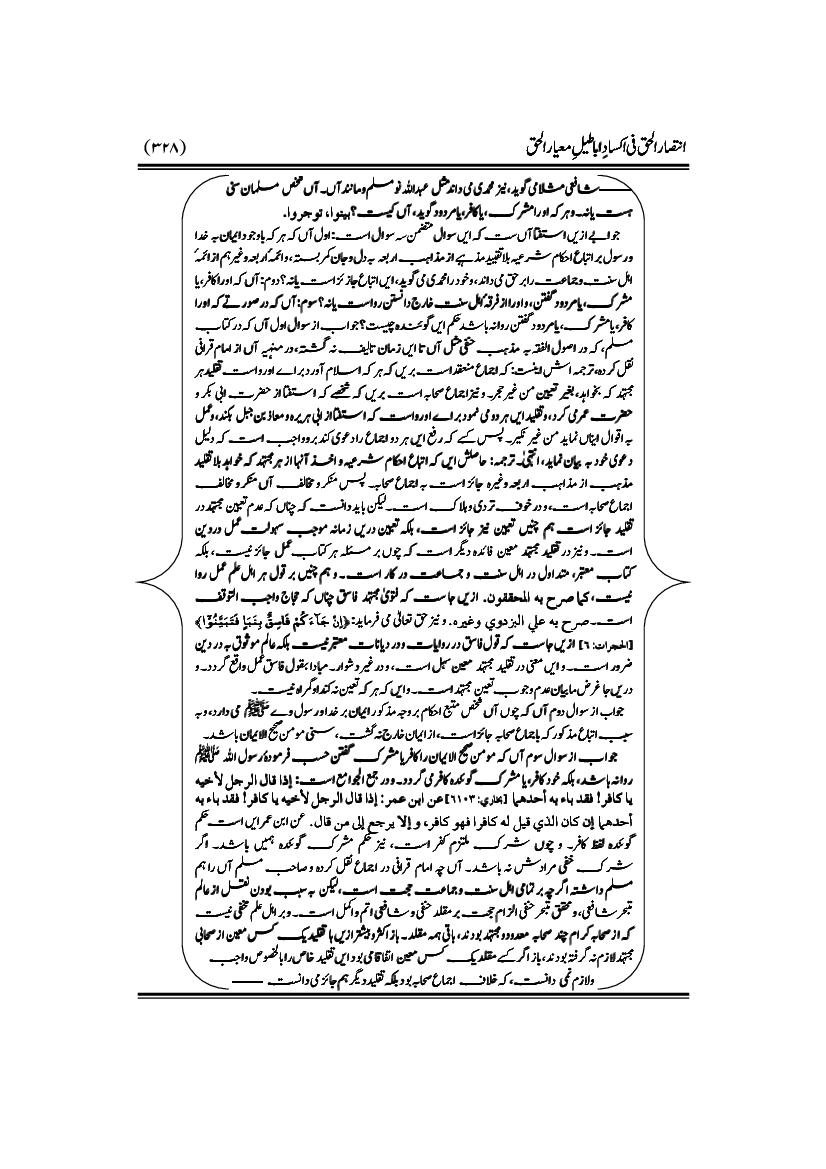 انتصار الحق فی اکساد اباطیل معیار الحق (۳۲۸)
شافعی مثلا می گوید، نیز محمدی می داند مثل عبداللہ نو مسلم و مانند آں۔ آں شخص مسلمان سنی
ہست یانہ۔ و ہر کہ اورا مشرک، یا کافر، یا مردود گوید، آں کیست؟ بینوا، توجروا.
جواب ازیں استفتا آں ست کہ ایں سوال متضمن سہ سوال است: اول آں کہ ہر کہ باوجود ایمان بہ خدا
و رسول بر اتباع احکام شرعیہ بلا تقیید مذہبے از مذاہب اربعہ بہ دل و جان کمر بستہ، و ائمۂ اربعہ و غیر ہم از ائمۂ
اہل سنت و جماعت را بر حق می داند، و خود را محمدی می گوید، ایں اتباع جائز است یانہ؟ دوم: آں کہ اورا کافر، یا
مشرک، یا مردود گفتن، و اورا از فرقۂ اہل سنت خارج دانستن رواست یانہ؟ سوم: آں کہ در صورتے کہ اورا
کافر، یا مشرک، یا مردود گفتن روا نہ باشد حکم ایں گوئندہ چیست؟ جواب از سوال اول آں کہ در کتاب
مسلم، کہ در اصول الفقہ بہ مذہب حنفی مثل آں تا ایں زمان تالیف نہ گشتہ، در منہیہ آں از امام قرافی
نقل کردہ، ترجمہ اش اینست: کہ اجماع منعقد است بریں کہ ہر کہ اسلام آورد براے اورواست تقلید ہر
مجتہد کہ بخواہد، بغیر تعیین من غیر حجر۔ و نیز اجماع صحابہ است بریں کہ شخصے کہ استفتا از حضرت ابی بکر و
حضرت عمری کرد، و تقلید ایں ہر دو می نمود براے اورواست کہ استفتا از ابی ہریرہ و معاذ بن جبل بکند، و عمل
بہ اقوال ایناں نماید من غیر نکیر۔ پس کسے کہ رفع ایں ہر دو اجماع را دعوی کند برو واجب است کہ دلیل
دعوی خود بہ بیان نماید، انتہیٰ۔ ترجمہ: حاصلش ایں کہ اتباع احکام شرعیہ و اخذ آنہا از ہر مجتہد کہ خواہد بلا تقلید
مذہب از مذاہب اربعہ وغیرہ جائز است بہ اجماع صحابہ۔ پس منکر و مخالف آں منکر و مخالف
اجماع صحابہ است، و در خوف تردی و ہلاک است۔ لیکن باید دانست کہ چناں کہ عدم تعیین مجتہد در
تقلید جائز است ہم چنیں تعیین نیز جائز است، بلکہ تعیین دریں زمانہ موجب سہولت عمل در دین
است۔ و نیز در تقلید مجتہد معین فائدہ دیگر است کہ چوں بر مسئلہ ہر کتاب عمل جائز نیست، بلکہ
کتاب معتبر، متداول در اہل سنت و جماعت در کار است۔ و ہم چنیں بر قول ہر اہل علم عمل روا
نیست، كما صرح به المحققون. ازیں جاست کہ فتویٰ مجتہد فاسق چناں کہ حجاج واجب التوقف
است۔ صرح به علي البزدوي وغيره. و نیز حق تعالیٰ می فرماید: ﴿إِنْ جَآءَكُمْ فَاسِقٌۢ بِنَبَإٍ فَتَبَيَّنُوْٓا﴾
[الحجرات: ۶] ازیں جاست کہ قول فاسق در روایات و در دیانات معتبر نیست بلکہ عالم موثوق بہ در دین
ضرور است۔ و ایں معنی در تقلید مجتہد معین سہل است، و در غیر و شوار۔ مبادا بقول فاسق عمل واقع گردد۔ و
دریں جا غرض ما بیان عدم وجوب تعین مجتہد است۔ و ایں کہ ہر کہ تعین نہ کند او گمراہ نیست۔
جواب از سوال دوم آں کہ چوں آں شخص متبع احکام بر وجہ مذکور ایمان بر خدا و رسول وے ﷺ می دارد، و بہ
سبب اتباع مذکور کہ باجماع صحابہ جائز است، از ایمان خارج نہ گشت، سنی مومن صحیح الایمان باشد۔
جواب از سوال سوم آں کہ مومن صحیح الایمان را کافر یا مشرک گفتن حسب فرمودۂ رسول اللہ ﷺ
روا نہ باشد، بلکہ خود کافر، یا مشرک گوئندہ کافر می گردد۔ و در جمع الجوامع است: إذا قال الرجل لأخيه
يا كافر! فقد باء به أحدهما [بخاري: ۶۱۰۳] عن ابن عمر: إذا قال الرجل لأخيه يا كافر! فقد باء به
أحدهما إن كان الذي قيل له كافرا فهو كافر، و إلا يرجع إلى من قال. عن ابن عمر ایں است حکم
گوئندہ لفظ کافر۔ و چوں شرک ملتزم کفر است، نیز حکم مشرک گوئندہ ہمیں باشد۔ اگر
شرک خفی مرادش نہ باشد۔ آں چہ امام قرافی در اجماع نقل کردہ و صاحب مسلم آں را ہم
مسلم داشتہ اگر چہ بر تمامی اہل سنت و جماعت حجت است، لیکن بہ سبب بودن نقل از عالم
تبحر شافعی، و محقق تبحر حنفی الزام حجت بر مقلد حنفی و شافعی اتم و اکمل است۔ و بر اہل علم مخفی نیست
کہ از صحابہ کرام چند صحابہ معدود و مجتہد بودند، باقی ہمہ مقلد۔ باز اکثر و بیشتر ازیں ہا تقلید یک کس معین از صحابی
مجتہد لازم نہ گرفتہ بودند، باز اگر کسے مقلد یک کس معین اتفاقا می بود ایں تقلید خاص را بالخصوص واجب
و لازم نمی دانست، کہ خلاف اجماع صحابہ بود بلکہ تقلید دیگر ہم جائز می دانست